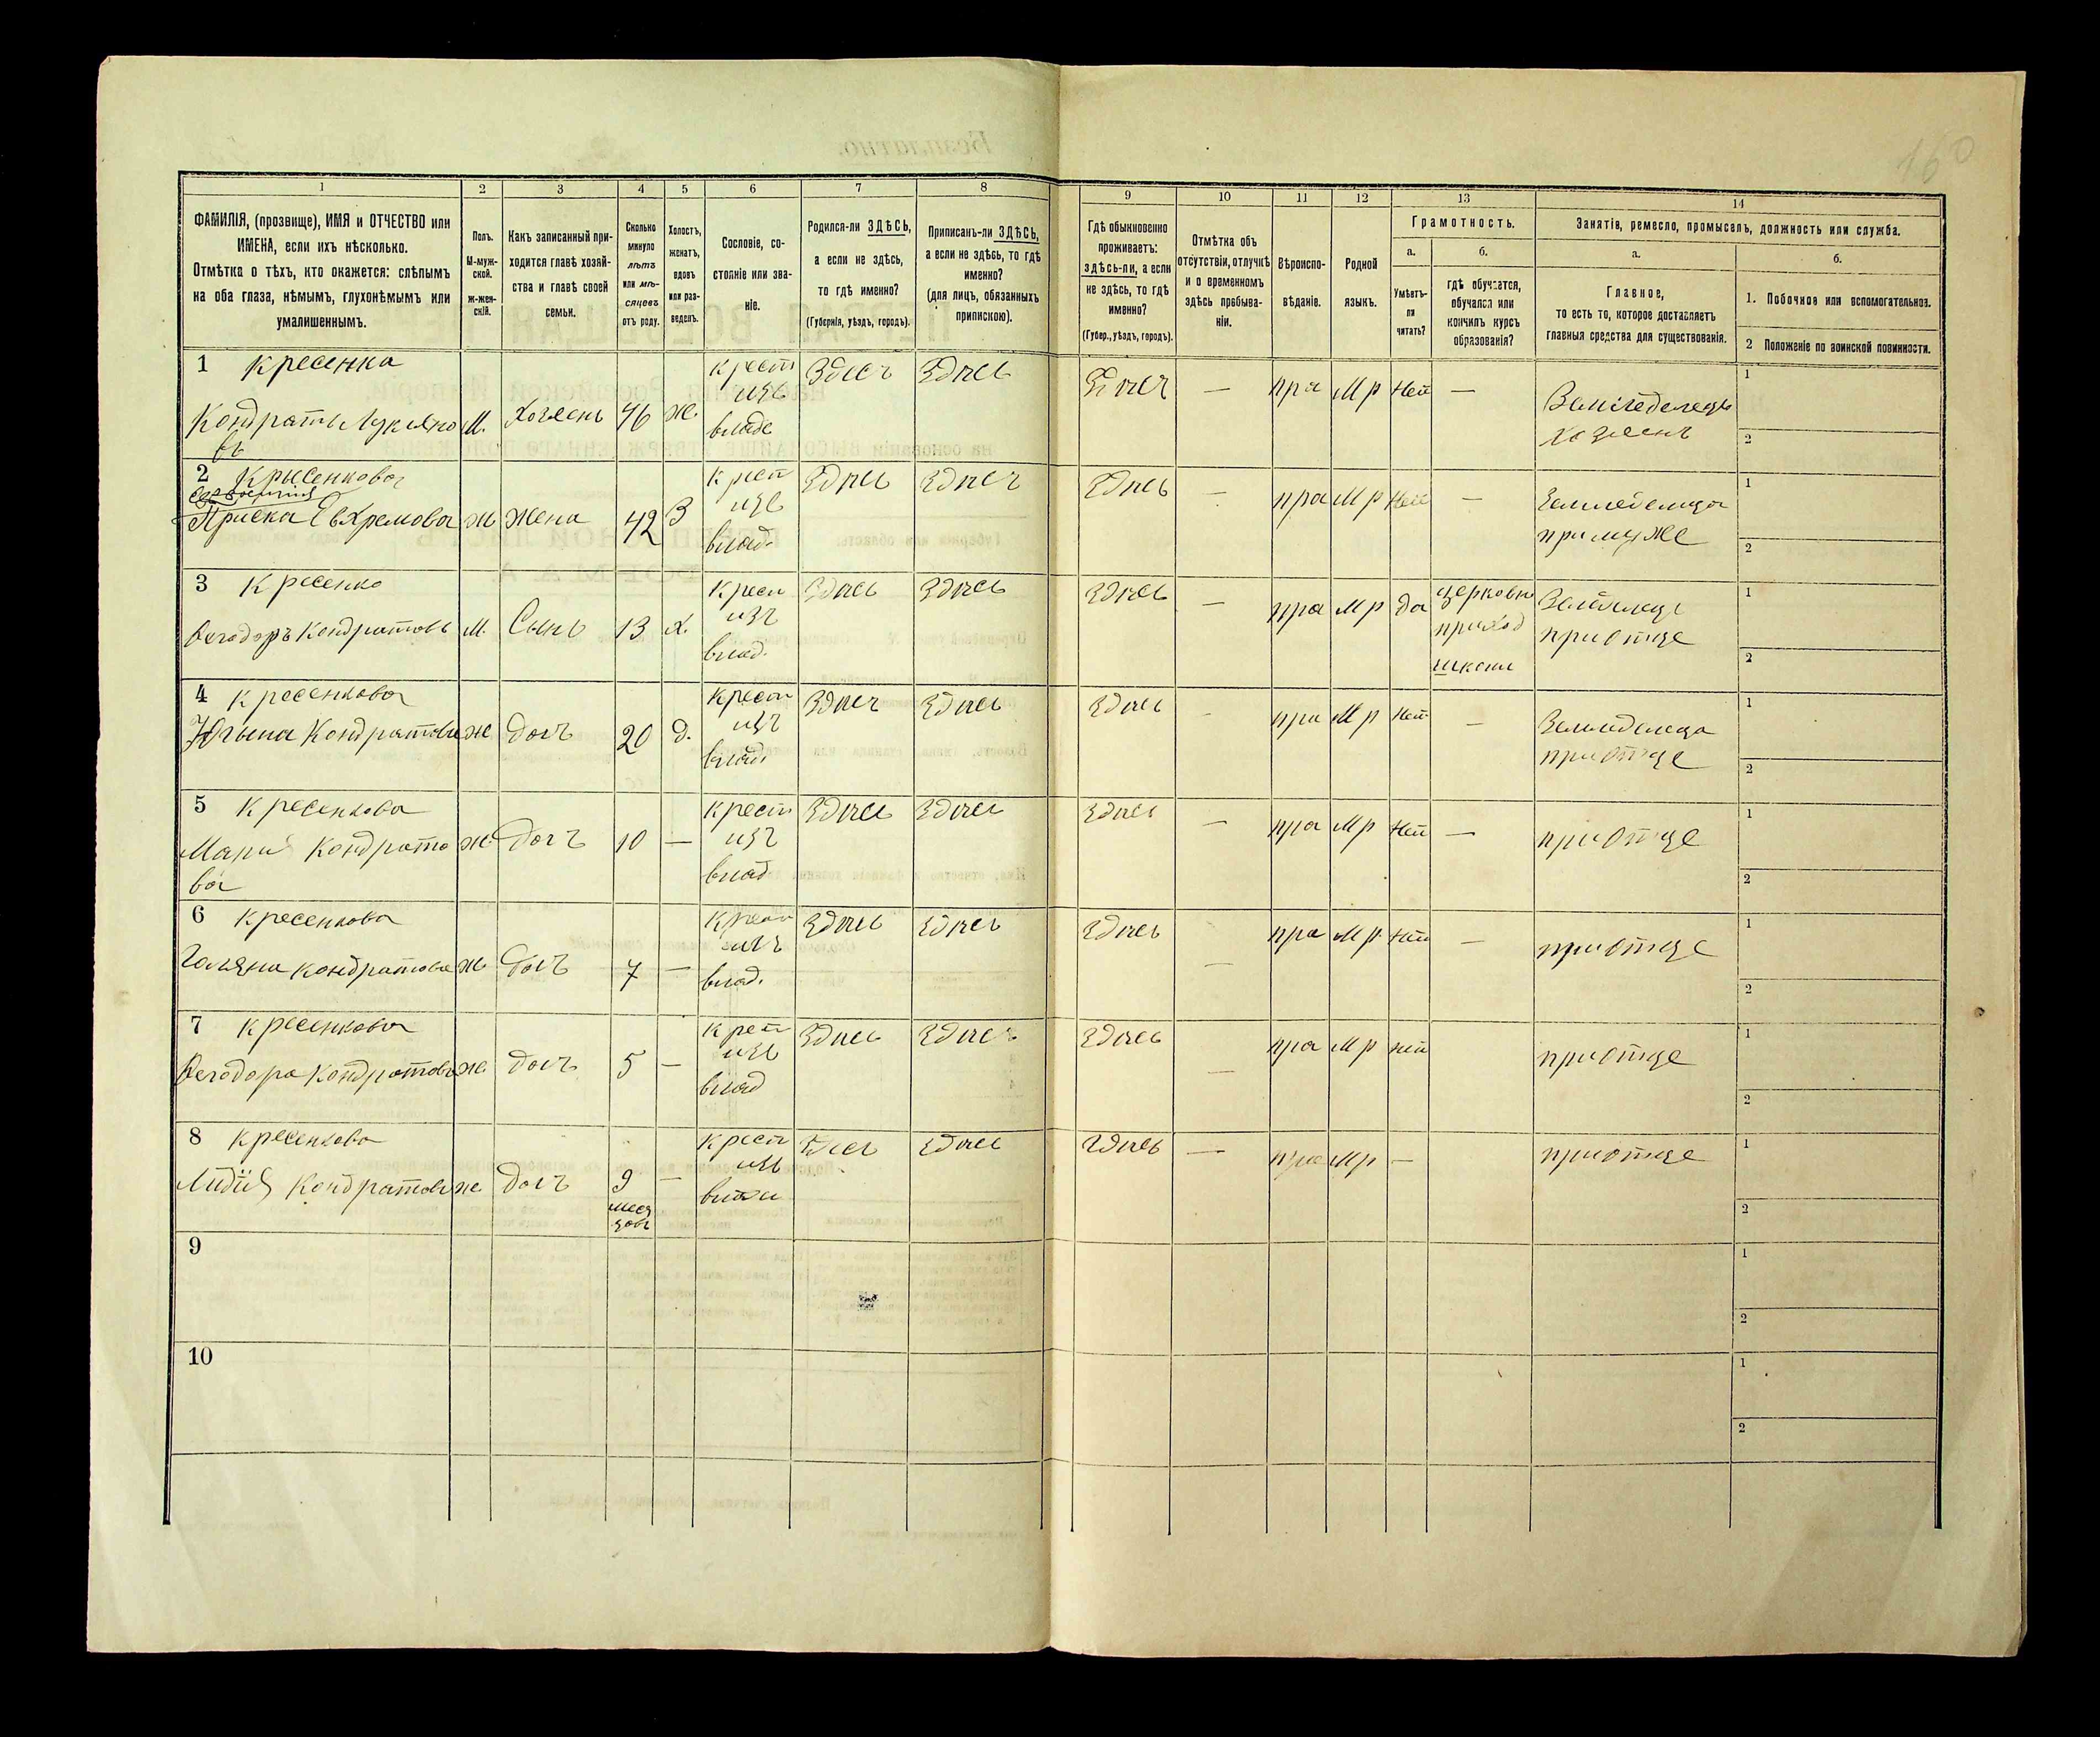 160
1 2 3 4 5 6 7 8 9 10 11 12 13 14
ФАМИЛІЯ, (прозвище), ИМЯ и ОТЧЕСТВО или
ИМЕНА, если ихъ нѣсколько.
Отмѣтка о тѣхъ, кто окажется: слѣпымъ
на оба глаза, нѣмымъ, глухонѣмымъ или
умалишеннымъ.
Полъ.
М-муж-
ской.
ж-жен-
скій.
Какъ записанный при-
ходится главѣ хозяй-
ства и главѣ своей
семьи.
Сколько
минуло
лѣтъ
или мѣ-
сяцевъ
отъ роду.
Холостъ,
женатъ,
вдовъ
или раз-
веденъ.
Сословіе, со-
стояніе или зва-
ніе.
Родился-ли ЗДѢСЬ,
а если не здѣсь,
то гдѣ именно?
(Губернія, уѣздъ, городъ).
Приписанъ-ли ЗДѢСЬ,
а если не здѣсь, то гдѣ
именно?
(для лицъ, обязанныхъ
припискою).
Гдѣ обыкновенно
проживаетъ:
здѣсь-ли, а если
не здѣсь, то гдѣ
именно?
(Губер., уѣздъ, городъ).
Отмѣтка объ
отсутствіи, отлучкѣ
и о временномъ
здѣсь пребыва-
ніи.
Вѣроиспо-
вѣданіе.
Родной
языкъ.
Грамотность.
а.
Умѣетъ-
ли
читать?
б.
гдѣ обучается,
обучался или
кончилъ курсъ
образованія?
Занятіе, ремесло, промыселъ, должность или служба.
а.
Главное,
то есть то, которое доставляетъ
главныя средства для существованія.
б.
1. Побочное или вспомогательное.
2 Положеніе по воинской повинности.
1 Кресенка
Кондратъ Лукьяно
въ
М. 46 ж.
крест
изъ
владе
Здесь Здпсь Здпсь — пра М р Нет —
1
2
2 Крысенкова
Приска Евхремова
ж жена 42 З
крест
изъ
влад.
Здпсь Здпсь Здпсь — пра М р Нет —
Земледелица
примуже
1
2
3 Кресенко
Кондратовъ
М. Сынъ 13 х.
крест
изъ
влад.
Здпсь Здпсь Здпсь — пра М р да
церковн
приход
школи
приотце
1
2
4 Кресенкова
Кондратови
ж дочъ 20 д.
крест
изъ
влад.
Здпсь Здпсь Здпсь — пра М р Нет —
приотце
1
2
5 Кресенкова
Марий Кондрато
ва
ж дочъ 10 —
крест
изъ
влад
Здпсь Здпсь Здпсь — пра М р Нет —
приотце
1
2
6 Кресенкова
Кондратова
ж дочъ 7 —
крест
изъ
влад.
Здпсь Здпсь Здпсь — пра М р Нет —
приотце
1
2
7 Кресенкова
Кондратовъ
ж. дочъ 5 —
крест
изъ
влад
Здпсь Здпсь Здпсь — пра М р нет
приотце
1
2
8 Кресенкова
Лидія Кондратови
ж дочъ 9
месяцовъ —
крест
изъ
Здесь Здпсь Здпсь — пра М р —
приотце
1
2
9
1
2
10
1
2